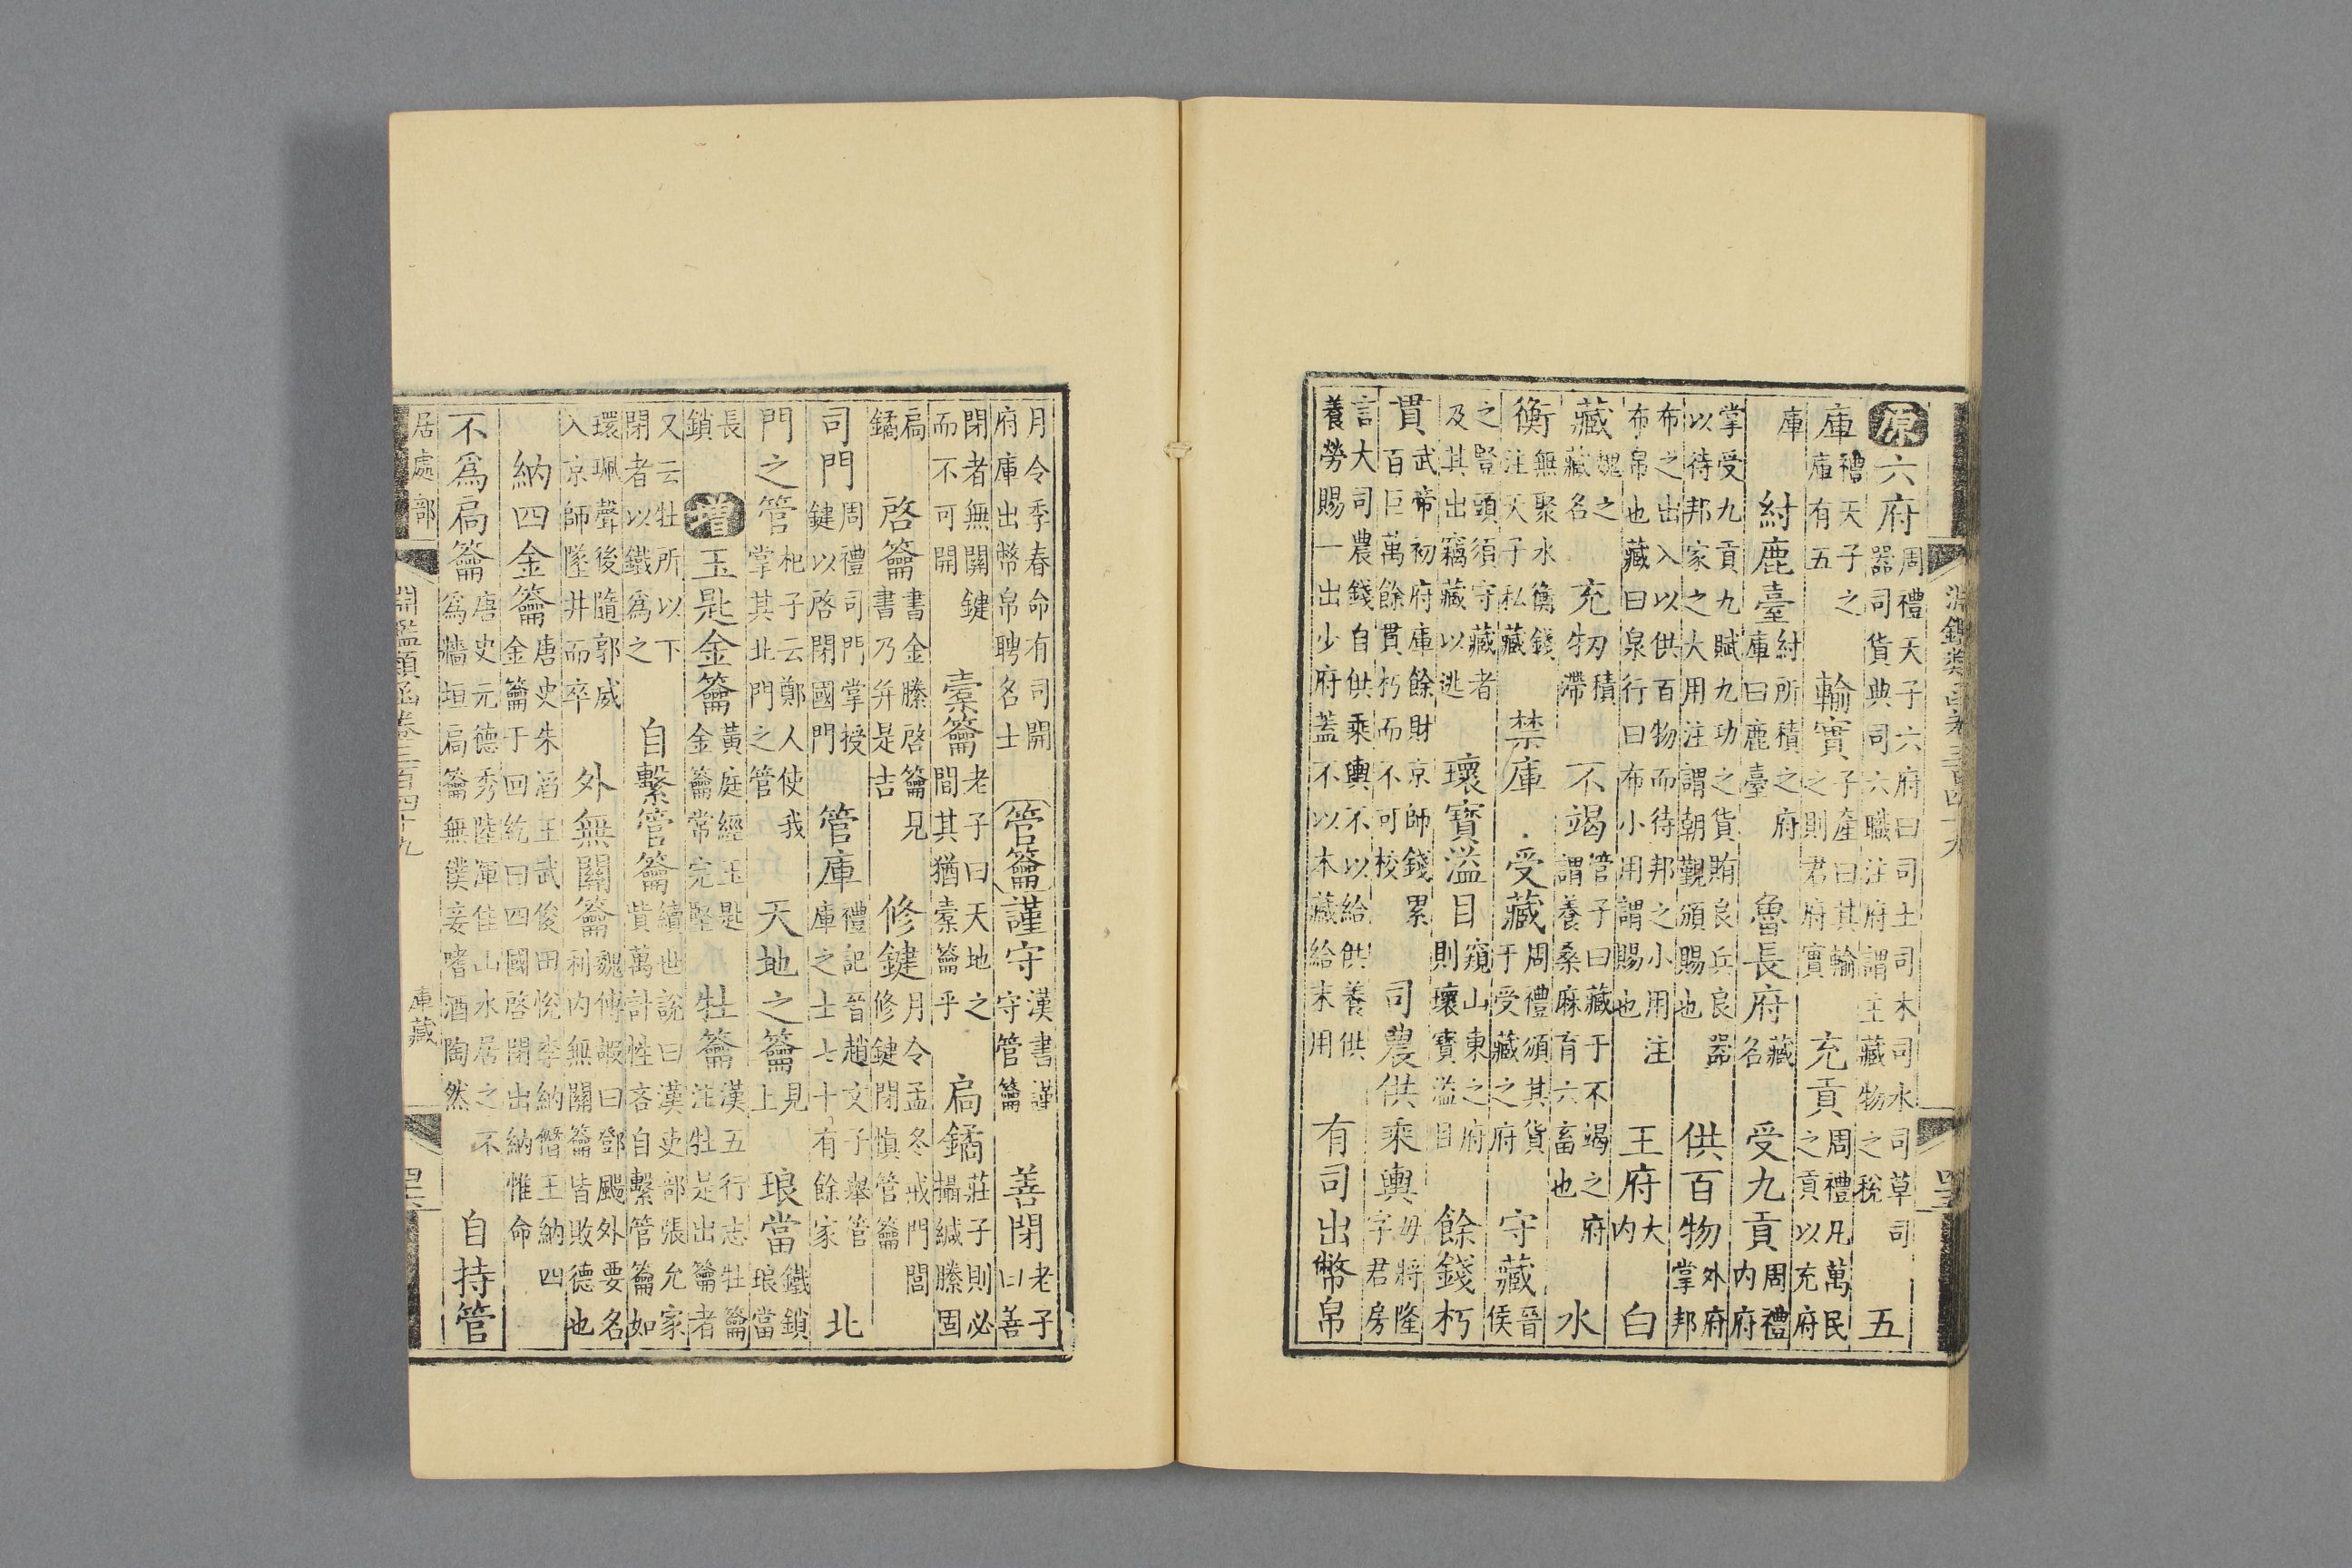 淵鑑類函卷三百四十九
原六府周禮天子六府曰司土司木司水司草司器司貨典司六職注府謂主藏物之稅五
庫禮天子之庫有五輸實子產曰其輸之則君府實充貢周禮凡萬民之貢以充府
庫紂鹿臺紂所積之府庫曰鹿臺魯長府藏名受九貢周禮内府
掌受九貢九賦九功之貨賄良兵良器以待邦家之大用注謂朝觀頒賜也供百物外府掌邦
布之出入以供百物而待邦之小用注布帛也藏曰泉行曰布小用謂賜也王府大内白
藏魏之藏名充牣積滯不竭管子曰藏于不竭之府謂養桑麻育六畜也水
衡無聚水衡錢注天子私藏禁庫受藏周禮頒其貨于受藏之府守藏晉侯
之豎頭須守藏者及其出竊藏以逃壞寶溢目窺山東之府則壞寶溢目餘錢朽
貫武帝初府庫餘財京師錢累百巨萬餘貫朽而不可校司農供乘輿毋將隆字君房
言大司農錢自供乘輿不以給供養供養勞賜一出少府蓋不以本藏給末用有司出幣帛
月令季春命有司開府庫出幣帛聘名士管籥謹守漢書謹守管籥善閉老子曰善
閉者無關鍵而不可開橐籥老子曰天地之間其猶橐籥乎扃鐍莊子則必攝緘縢固
扃鐍啓籥書金縢啓籥見書乃并是吉修鍵月令孟冬戒門閭修鍵閉慎管籥
司門周禮司門掌授鍵以啓閉國門管庫禮記晉趙文子舉管庫之士七十有餘家北
門之管杞子云鄭人使我掌其北門之管天地之籥見上琅當鐵鎖琅當
長鎖增玉匙金籥黃庭經玉匙金籥常完堅牡籥漢五行志牡籥注牡是出籥者
又云牡所以下閉者以鐵爲之自繫管籥續世說曰漢吏部張允家貲萬計性吝自繫管籥如
環珮聲後隨郭威入京師墜井而卒外無關籥魏傅嘏曰鄧颺外要名利内無關籥皆敗德也
納四金籥唐史朱滔王武俊田悅李納僭王納四金籥于回紇曰四國啓閉出納惟命
不爲扃籥唐史元德秀陸渾佳山水居之不爲牆垣扃籥無僕妾嗜酒陶然自持管
居處部
淵鑑類函卷三百四十九
庫藏